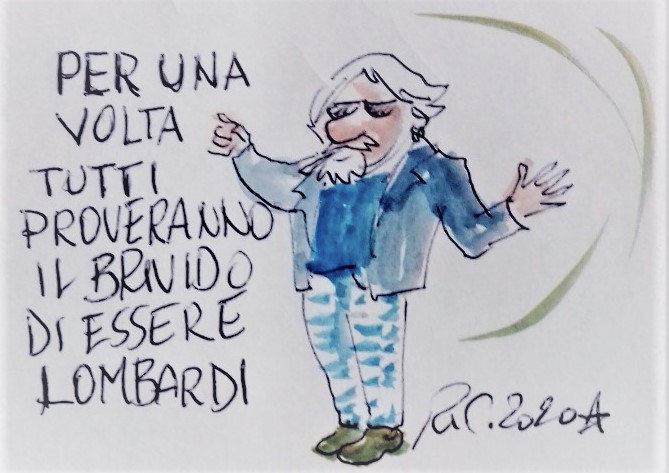 PER UNA
VOLTA
TUTTI
PROVERANNO
IL BRIVIDO
DI ESSERE
LOMBARDI
2020